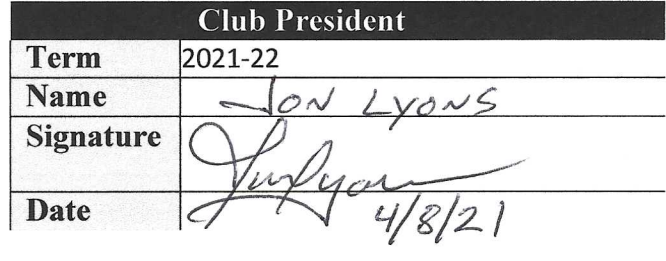 Club President
Term 2021-22
Name JON LYONS
Signature Jon Lyons
Date 4/8/21